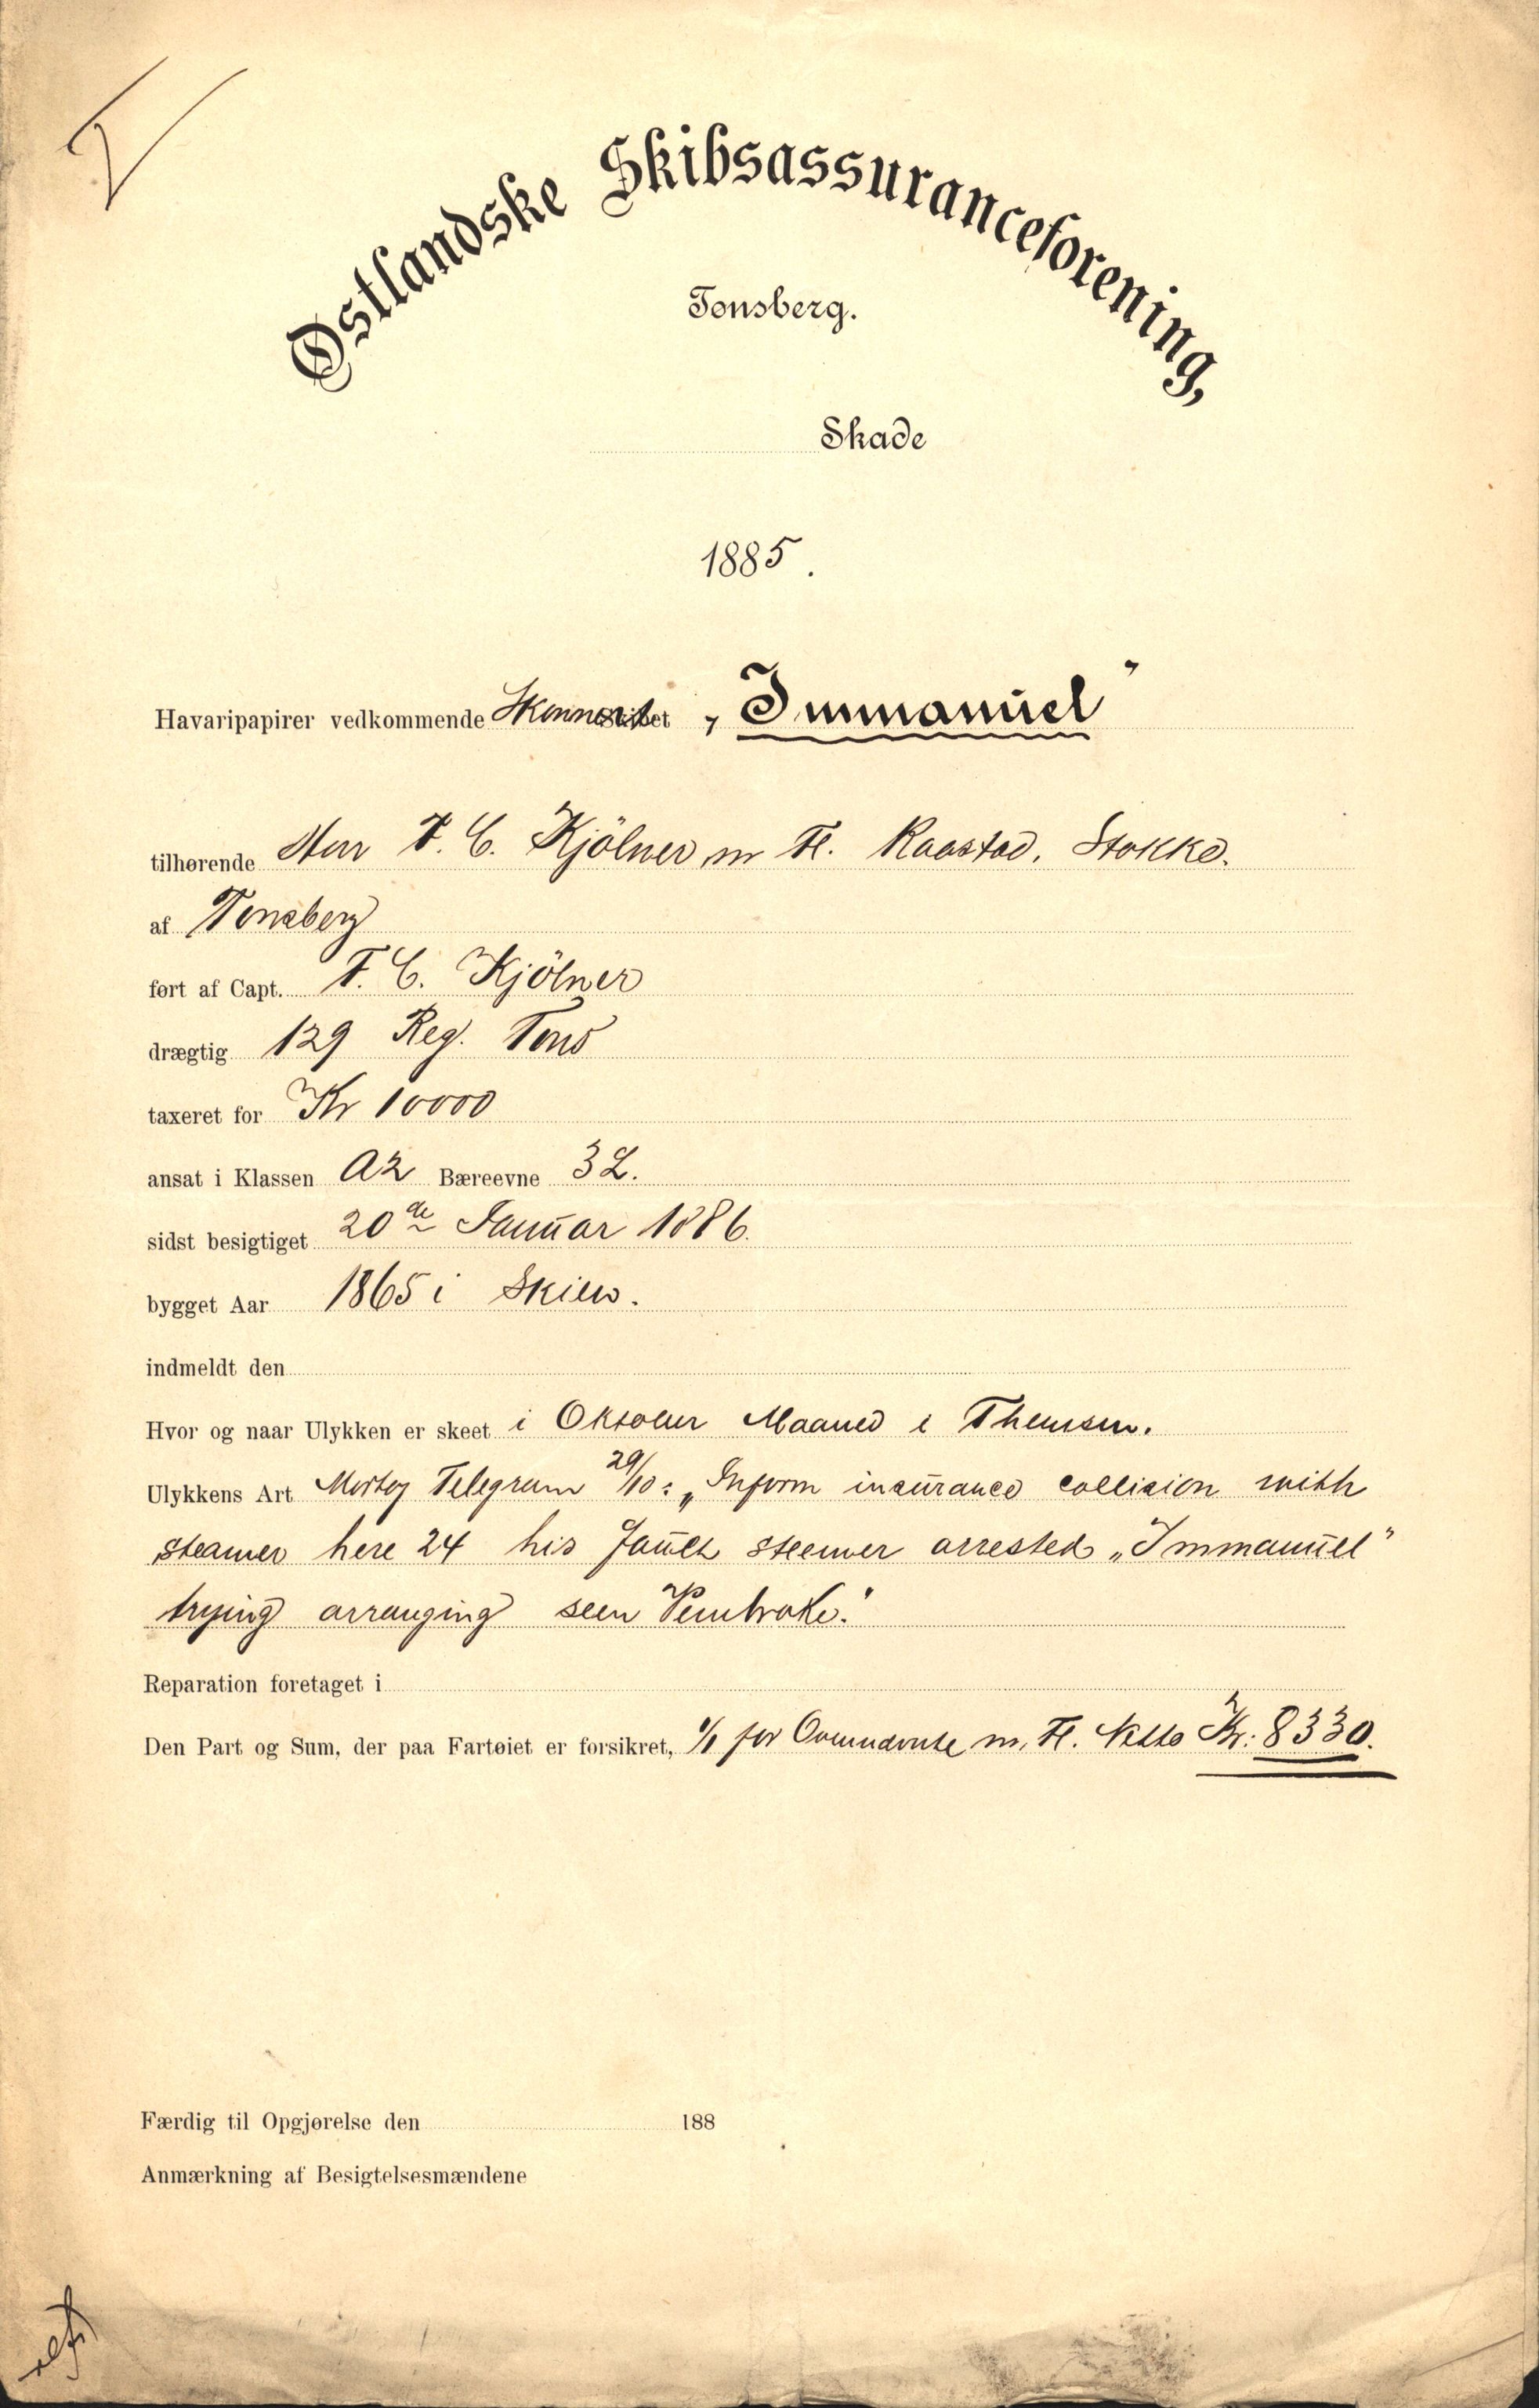 Østlandske Skibsassuranceforening,
Tønsberg.
Skade
1885.
Havaripapirer vedkommende Skonnert Skibet „Immanuel"
tilhørende Herr F. C. Kjölner m Fl. Raastad, Stokke.
af Tønsberg
ført af Capt. F. C. Kjölner
drægtig 129 Reg. Tons
taxeret for Kr 10000
ansat i Klassen A2 Bæreevne 3 L.
sidst besigtiget 20de Januar 1886.
bygget Aar 1865 i Skien.
indmeldt den
Hvor og naar Ulykken er skeet i Oktober Maaned i Themsen.
Ulykkens Art Telegram 29/10: „Inform insurance collision with
steamer here 24 his fault steemer arrested „Immanuel"
trying arranging seen Pembroke."
Reparation foretaget i
Den Part og Sum, der paa Fartøiet er forsikret, 1/1 for m. Fl. Netto Kr: 8330.
Færdig til Opgjørelse den 188
Anmærkning af Besigtelsesmændene